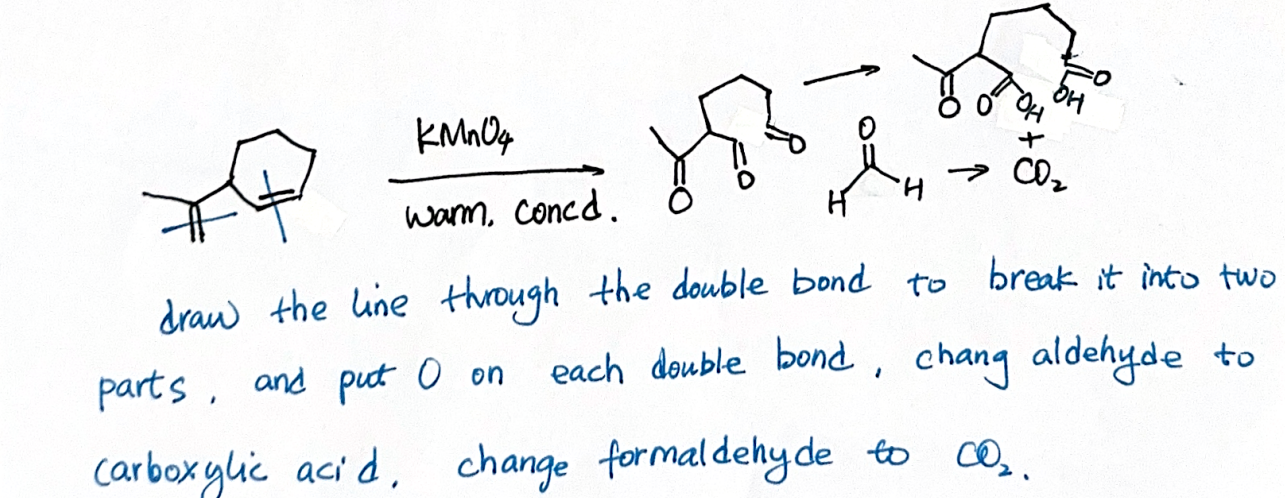 KMnO4
warm, concd.
O
O
O
O
O
OH
O
OH
+
O
H
H
CO2
draw the line through the double bond to break it into two
parts, and put O on each double bond, chang aldehyde to
carboxylic acid. change formaldehyde to CO2.